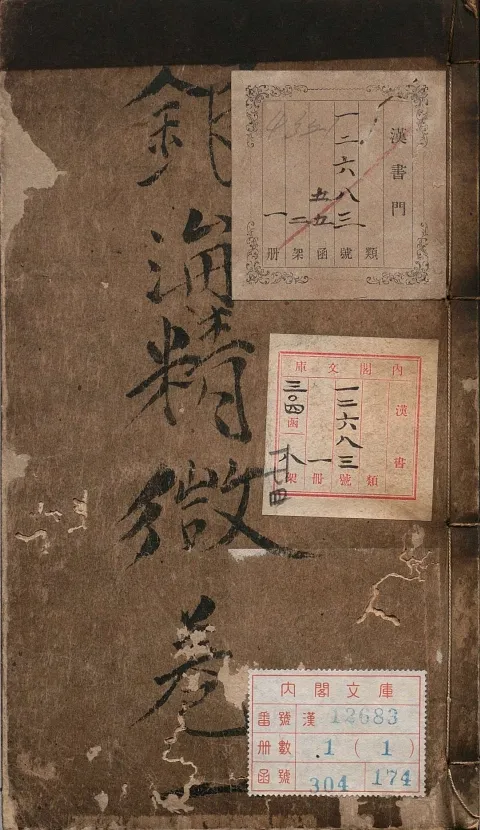 銀海精微卷一
漢書門
一二六八三
五五
二
一
類號函架冊
內閣文庫
漢書
一二六八三
類號冊
一
三〇四
函架
内閣文庫
番號 漢 12683
册數 1 (1)
函號 304 174